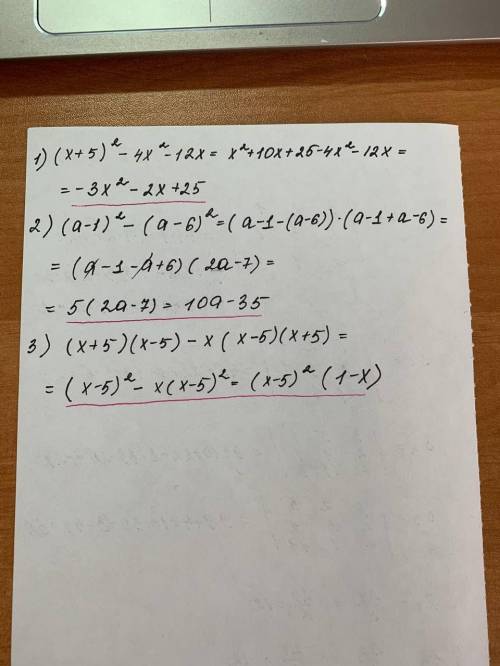 1) (x+5)² - 4x² - 12x = x² + 10x + 25 - 4x² - 12x =
= -3x² - 2x + 25
2) (a-1)² - (a-6)² = (a-1-(a-6))·(a-1+a-6) =
= (a-1-a+6)(2a-7) =
= 5(2a-7) = 10a-35
3) (x+5)(x-5) - x(x-5)(x+5) =
= (x-5)² - x(x-5)² = (x-5)² (1-x)